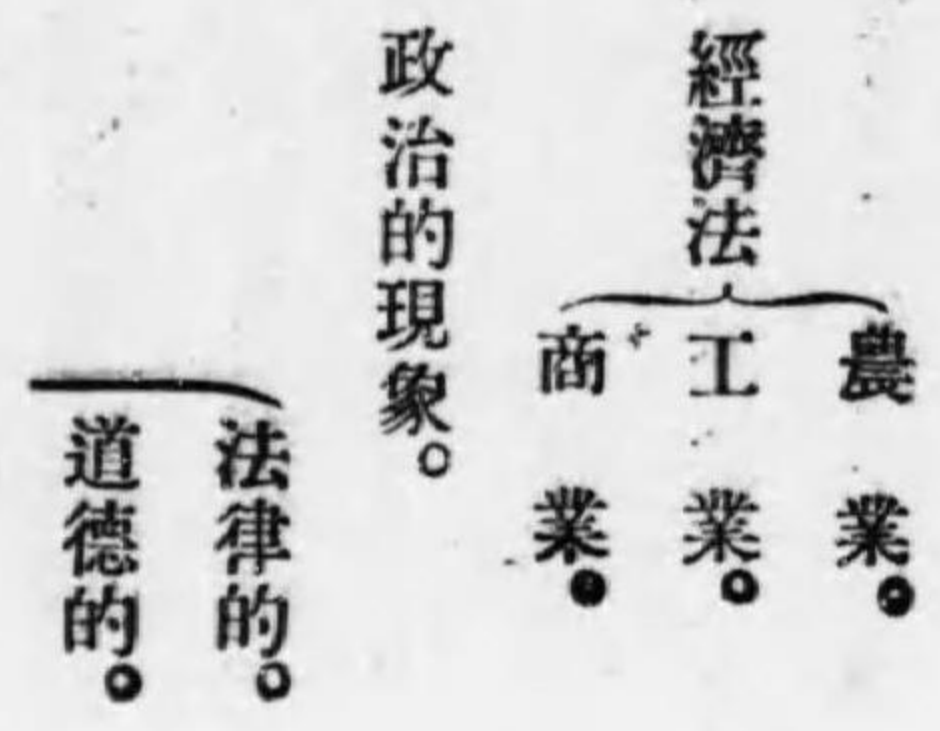 經濟法
農業。
工業。
商業。
政治的現象。
法律的。
道德的。